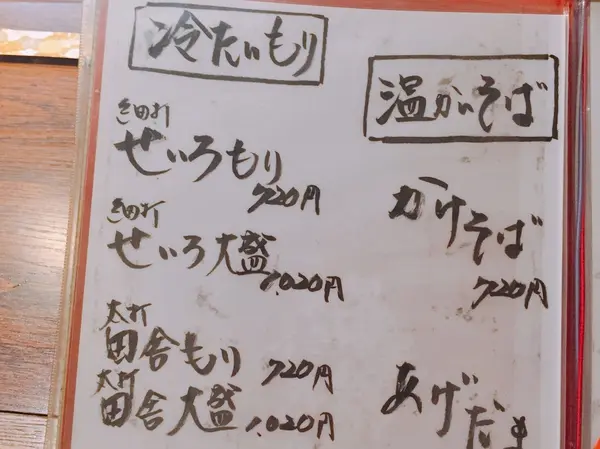 冷たいもり
細打
せいろもり
720円
細打
せいろ大盛
1,020円
太打
田舎もり
720円
太打
田舎大盛
1,020円
温かいそば
かけそば
720円
あげだま